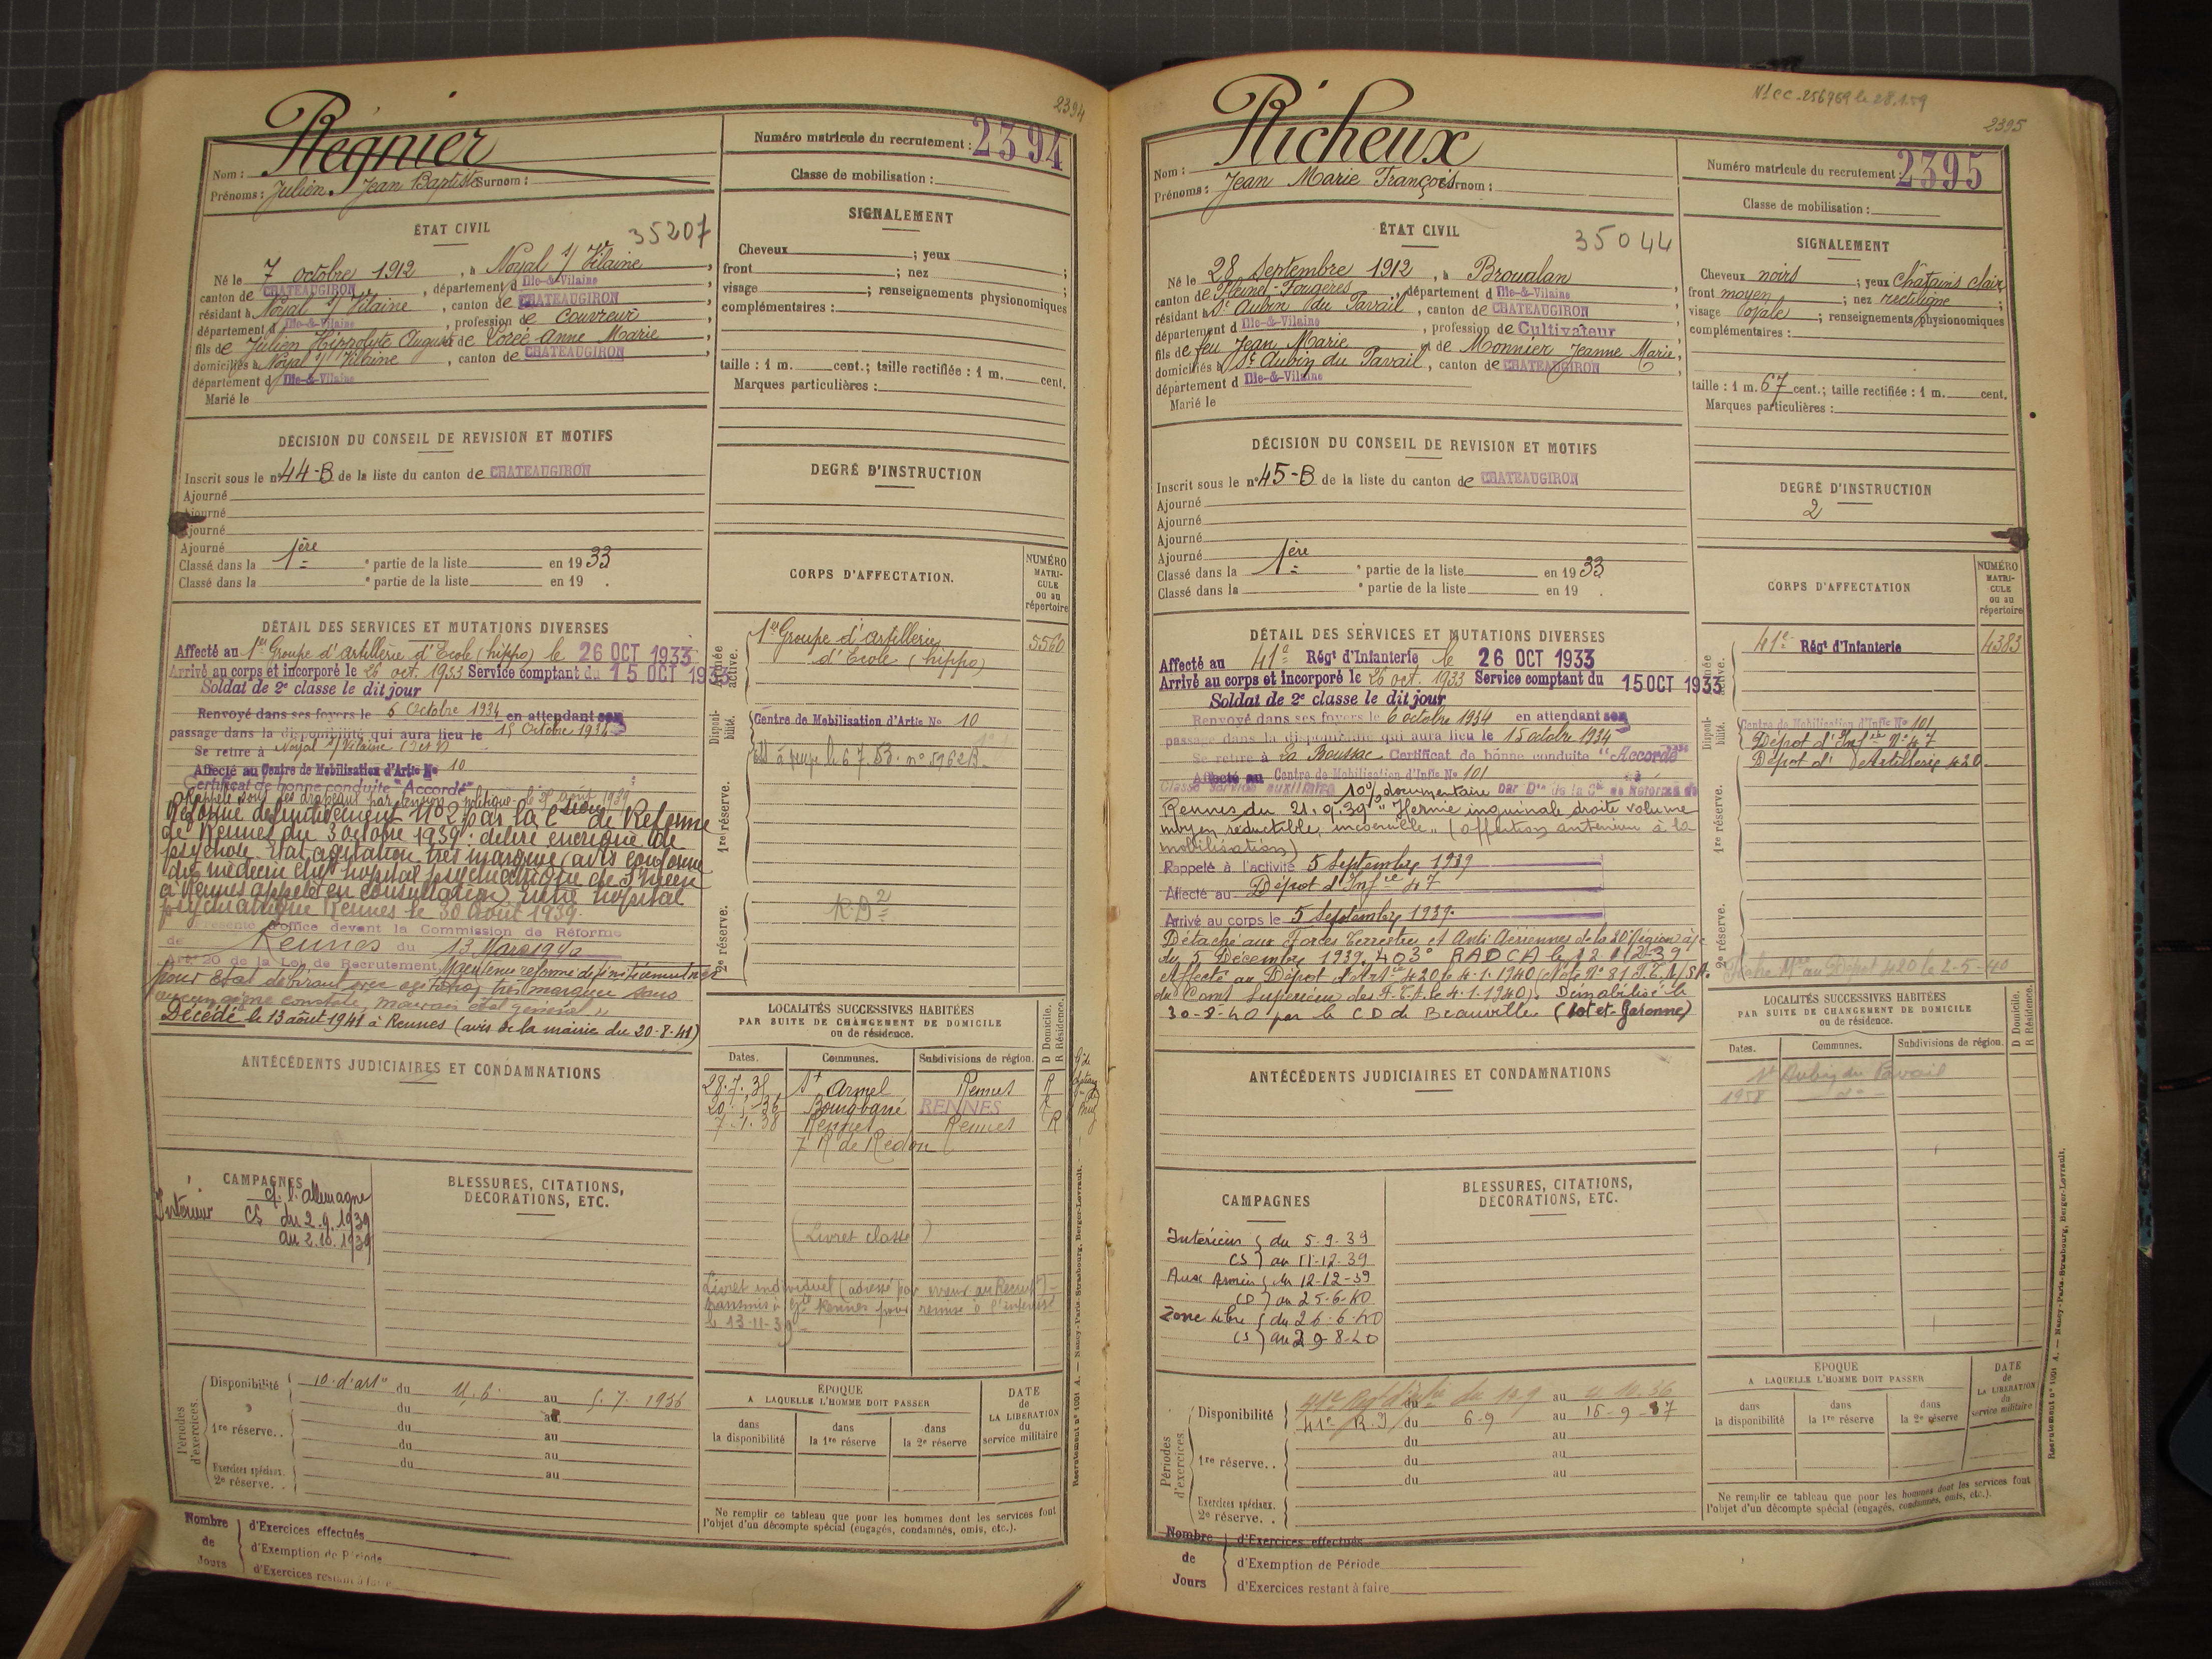 2394
Régnier
Nom :
Prénoms : Julien. Jean Baptiste Surnom :
Numéro matricule du recrutement : 2394
Classe de mobilisation :
ÉTAT CIVIL
35207
Né le 7 octobre 1912, à Noyal s/ Vilaine,
canton de CHATEAUGIRON, département d Ille-&-Vilaine
résidant à Noyal s/ Vilaine, canton de CHATEAUGIRON
département d Ille-&-Vilaine, profession de Couvreur
fils de Julien Hippolyte Auguste de Lorée Anne Marie
domiciliés à Noyal s/ Vilaine, canton de CHATEAUGIRON
département d Ille-&-Vilaine
Marié le
SIGNALEMENT
Cheveux ; yeux
front ; nez ;
visage ; renseignements physionomiques
complémentaires :
taille : 1 m. cent.; taille rectifiée : 1 m. cent.
Marques particulières :
DÉCISION DU CONSEIL DE REVISION ET MOTIFS
Inscrit sous le n° 44-B de la liste du canton de CHATEAUGIRON
Ajourné
Ajourné
Ajourné
Ajourné
Classé dans la 1ère partie de la liste en 1933
Classé dans la partie de la liste en 19 .
DEGRÉ D'INSTRUCTION
CORPS D'AFFECTATION.
NUMÉRO MATRICULE ou au répertoire
DÉTAIL DES SERVICES ET MUTATIONS DIVERSES
Affecté au 1er Groupe d'artillerie d'Ecole (hippo) le 26 OCT 1933
Arrivé au corps et incorporé le 26 oct. 1933 Service comptant du 15 OCT 1933
Soldat de 2e classe le dit jour
Renvoyé dans ses foyers le 6 Octobre 1934 en attendant son
passage dans la disponibilité qui aura lieu le 15 Octobre 1934
Se retire à Noyal s/Vilaine
Affecté au Centre de Mobilisation d'Artie No 10
Certificat de bonne conduite "Accordé"
Rappelé sous les drapeaux par tension politique le août 1939
Réformé définitivement N°2 par la Con de Réforme
de Rennes du 3 octobre 1939 : délire onirique de
psychose. Etat agitation très marquée (avis conforme
du médecin chef hopital psychiatrique de St Méen
à Rennes appelé en consultation) entré hopital
psychiatrique Rennes le 30 Août 1939.
Présenté d'office devant la Commission de Réforme
de Rennes du 13 Mars 1940
Artle 20 de la Loi de Recrutement Maintenu réformé définitivement
pour Etat délirant avec agitation très marquée sans
aucun signe constaté, mauvais état général "
Décédé le 13 août 1941 à Rennes (avis de la mairie du 20-8-41)
Armée active.
1er Groupe d'artillerie
d'Ecole (hippo)
5560
Disponibilité.
Centre de Mobilisation d'Artie No 10
1re réserve.
2e réserve.
R.D 2
ANTÉCÉDENTS JUDICIAIRES ET CONDAMNATIONS
LOCALITÉS SUCCESSIVES HABITÉES
PAR SUITE DE CHANGEMENT DE DOMICILE
ou de résidence.
D Domicile. R Résidence.
Dates. Communes. Subdivisions de région.
28.7.35 St Armel Rennes R
20. .36 Bourgbarré RENNES R
7.1.38 Rennes Rennes R
7 R de Redon
(Livret classé)
Livret individuel (adressé par erreur au Recrutt) -
transmis à Gie Rennes pour remise à l'intéressé
le 13-11-39 -
CAMPAGNES
c/ l'allemagne
Intérieur CS du 2.9.1939
au 2.10.1939
BLESSURES, CITATIONS,
DÉCORATIONS, ETC.
Périodes d'exercices.
Disponibilité 10. d'artie du 11.6. au 5.7.1936
du au
1re réserve. . du au
du au
du au
Exercices spéciaux.
2e réserve. .
ÉPOQUE
A LAQUELLE L'HOMME DOIT PASSER
dans la disponibilité
dans la 1re réserve
dans la 2e réserve
DATE de LA LIBÉRATION du service militaire
Ne remplir ce tableau que pour les hommes dont les services font
l'objet d'un décompte spécial (engagés, condamnés, omis, etc.).
Nombre de Jours
d'Exercices effectués
d'Exemption de Période
d'Exercices restant à faire
Recrutement n° 1001 A. — Nancy-Paris-Strasbourg, Berger-Levrault.
2395
Richeux
Nom :
Prénoms : Jean Marie François Surnom :
Numéro matricule du recrutement : 2395
Classe de mobilisation :
ÉTAT CIVIL
35044
Né le 28 septembre 1912, à Broualan
canton de Pleine-Fougères, département d Ille-&-Vilaine
résidant à St Aubin du Pavail, canton de CHATEAUGIRON
département d Ille-&-Vilaine, profession de Cultivateur
fils de feu Jean Marie et de Monnier Jeanne Marie,
domiciliés à St Aubin du Pavail, canton de CHATEAUGIRON
département d Ille-&-Vilaine
Marié le
SIGNALEMENT
Cheveux noirs ; yeux chatains clair
front moyen ; nez rectiligne ;
visage ovale ; renseignements physionomiques
complémentaires :
taille : 1 m. 67 cent.; taille rectifiée : 1 m. cent.
Marques particulières :
DÉCISION DU CONSEIL DE REVISION ET MOTIFS
Inscrit sous le n° 45-B de la liste du canton de CHATEAUGIRON
Ajourné
Ajourné
Ajourné
Ajourné
Classé dans la 1ère partie de la liste en 1933
Classé dans la partie de la liste en 19 .
DEGRÉ D'INSTRUCTION
2
CORPS D'AFFECTATION
NUMÉRO MATRICULE ou au répertoire
DÉTAIL DES SERVICES ET MUTATIONS DIVERSES
Affecté au 41e Régt d'Infanterie le 26 OCT 1933
Arrivé au corps et incorporé le 26 oct. 1933 Service comptant du 15 OCT 1933
Soldat de 2e classe le dit jour
Renvoyé dans ses foyers le 6 octobre 1934 en attendant son
passage dans la disponibilité qui aura lieu le 15 octobre 1934
Se retire à La Boussac Certificat de bonne conduite "Accordé"
Affecté au Centre de Mobilisation d'Infie No 101
Classé service auxiliaire 10% documentaire par Don de la Con de Réforme de
Rennes du 21.9.39 " Hernie inguinale droite volume
moyen réductible, incoercible " (affection antérieure à la
mobilisation)
Rappelé à l'activité 5 Septembre 1939
Affecté au Dépot d'Infie 47
Arrivé au corps le 5 Septembre 1939.
Détaché aux Forces Terrestres et Anti Aériennes de la 20e Région
du 5 Décembre 1939. 403e RADCA le 12.12-39
Affecté au Dépot d'Artie 420 le 4.1.1940 (Note N° 81
du Comt Supérieur des F.T.A. le 4.1.1940). Démobilisé le
30-8-40 par le CD de Beauville (Lot et Garonne)
Armée active.
41e Régt d'Infanterie
4383
Disponibilité.
Centre de Mobilisation d'Infie No 101
Dépot d'Infie N° 47
Dépot d' Artillerie 420
1re réserve.
2e réserve.
au Dépot 420 le 2-5-40
ANTÉCÉDENTS JUDICIAIRES ET CONDAMNATIONS
LOCALITÉS SUCCESSIVES HABITÉES
PAR SUITE DE CHANGEMENT DE DOMICILE
ou de résidence.
D Domicile. R Résidence.
Dates. Communes. Subdivisions de région.
St Aubin du Pavail
1958 -do-
CAMPAGNES
Intérieur du 5-9-39
CS au 11-12-39
Aux Armées du 12-12-39
CD au 25-6-40
Zone Libre du 26-6-40
CS au 29-8-40
BLESSURES, CITATIONS,
DÉCORATIONS, ETC.
Périodes d'exercices.
Disponibilité 41e du au 36
41e R.I. du 6-9 au 16-9-37
du au
1re réserve. . du au
du au
Exercices spéciaux.
2e réserve. .
ÉPOQUE
A LAQUELLE L'HOMME DOIT PASSER
dans la disponibilité
dans la 1re réserve
dans la 2e réserve
DATE de LA LIBÉRATION du service militaire
Ne remplir ce tableau que pour les hommes dont les services font
l'objet d'un décompte spécial (engagés, condamnés, omis, etc.).
Nombre de Jours
d'Exercices effectués
d'Exemption de Période
d'Exercices restant à faire
Recrutement n° 1001 A. — Nancy-Paris-Strasbourg, Berger-Levrault.